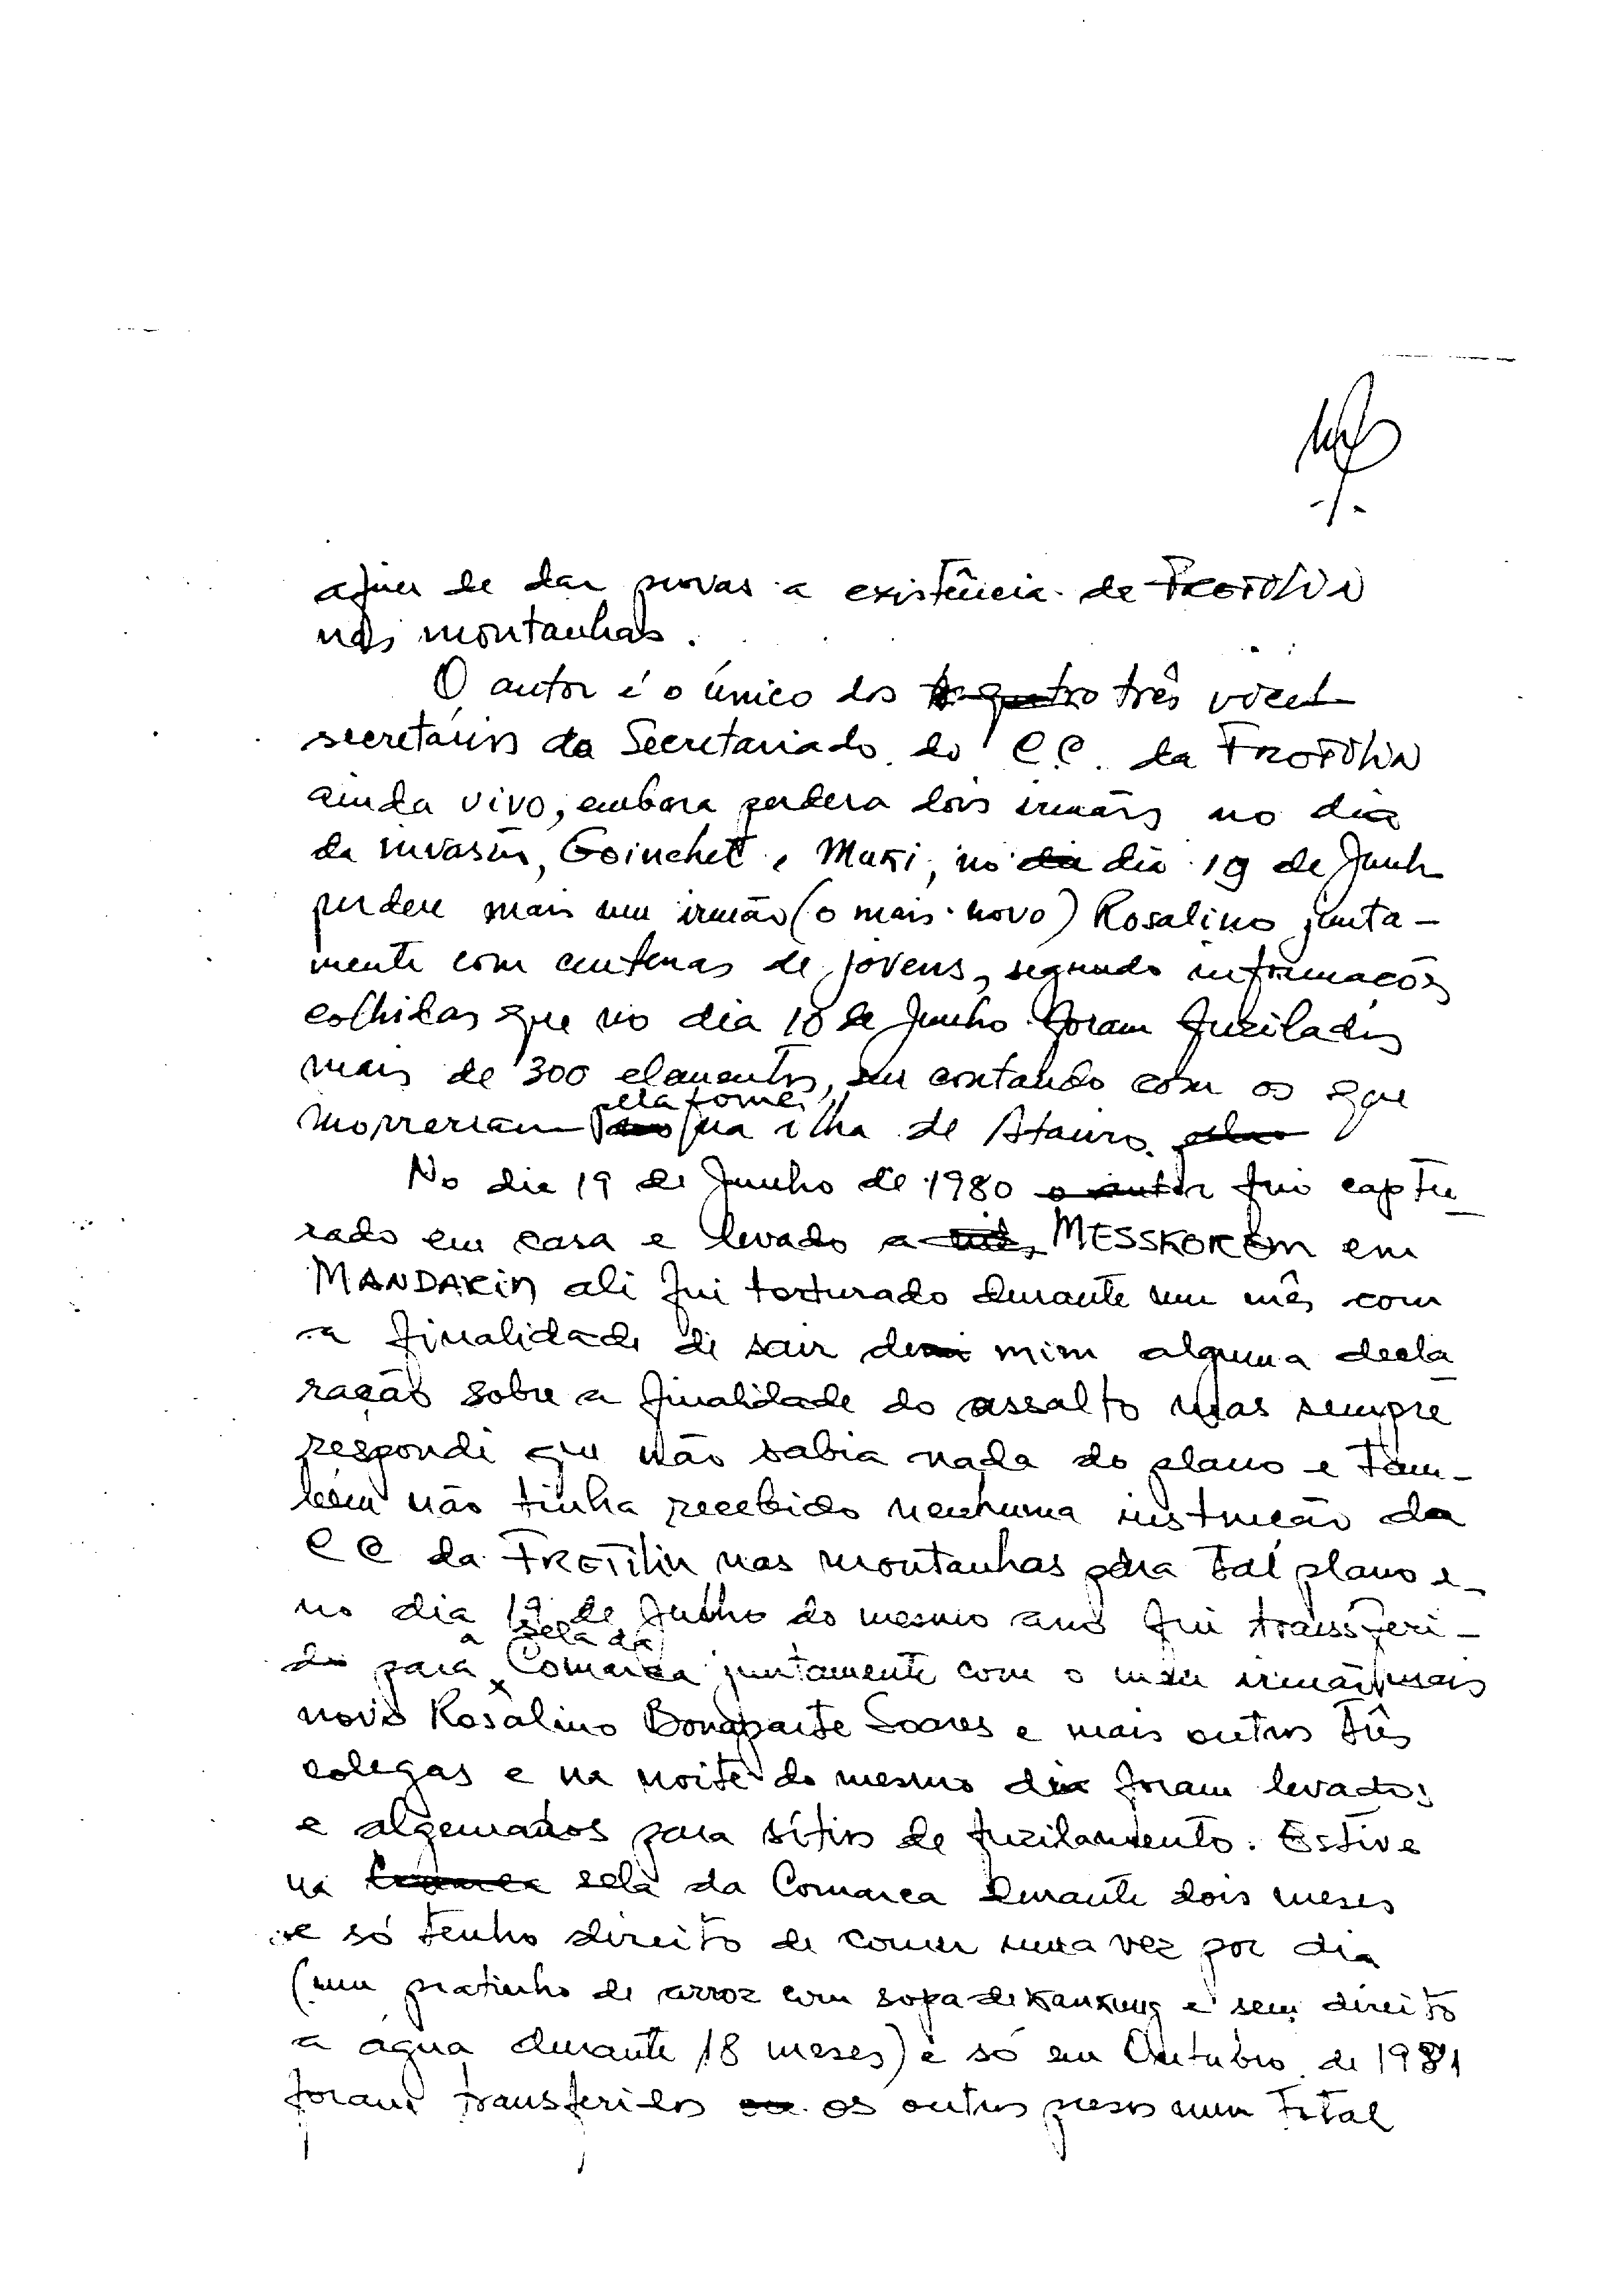 afim de dar provas a existência de FRETILIN
nas montanhas.
O autor é o único dos três vice
secretários do Secretariado do C.C. da FRETILIN
ainda vivo, embora perdera dois irmãos no dia
da invasão, Goinchet e Muki, no dia 19 de Junh
perdeu mais um irmão (o mais novo) Rosalino junta-
mente com centenas de jovens, segundo informações
colhidas que no dia 10 de Junho foram fuzilados
mais de 300 elementos, sem contando com os que
morreram pela fome na ilha de Atauro.
No dia 19 de Junho de 1980 fui captu-
rado em casa e levado a MESSKOREM em
MANDARIN ali fui torturado durante um mês com
a finalidade de sair de mim alguma decla-
ração sobre a finalidade do assalto mas sempre
respondi que não sabia nada do plano e tam-
bém não tinha recebido nenhuma instrução da
CC da FRETILIN nas montanhas para tal plano e
no dia 19 de Julho do mesmo ano fui transferi-
do para a sela da Comarca juntamente com o meu irmão mais
novo Rosalino Bonaparte Soares e mais outros três
colegas e na noite do mesmo dia foram levados
e algemados para sítios de fuzilamento. Estive
na sela da Comarca durante dois meses
e só tenho direito de comer uma vez por dia
(um pratinho de arroz com sopa de kankung e sem direito
a água durante 18 meses) e só em Outubro de 1981
foram transferidos os outros presos num total